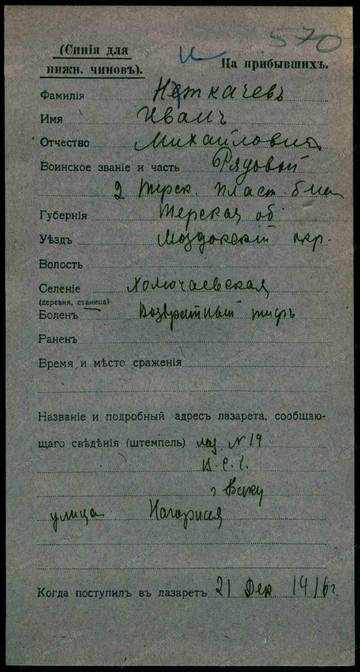 570
(Синія для
нижн. чиновъ).
На прибывшихъ.
Фамилія Неткачевъ
Имя Иванъ
Отчество Михайловичъ
Воинское званіе и часть Рядовой
2 Терск. Пласт. б-на
Губернія Терская об.
Уѣздъ Моздокскій окр.
Волость
Селеніе
(деревня, станица)
Боленъ Возвратный тифъ
Раненъ
Время и мѣсто сраженія
Названіе и подробный адресъ лазарета, сообщаю-
щаго свѣдѣнія (штемпель) лаз. N 19
В.С.Г.
г Баку
улица Нагорная
Когда поступилъ въ лазаретъ 21 Дек 1916 г